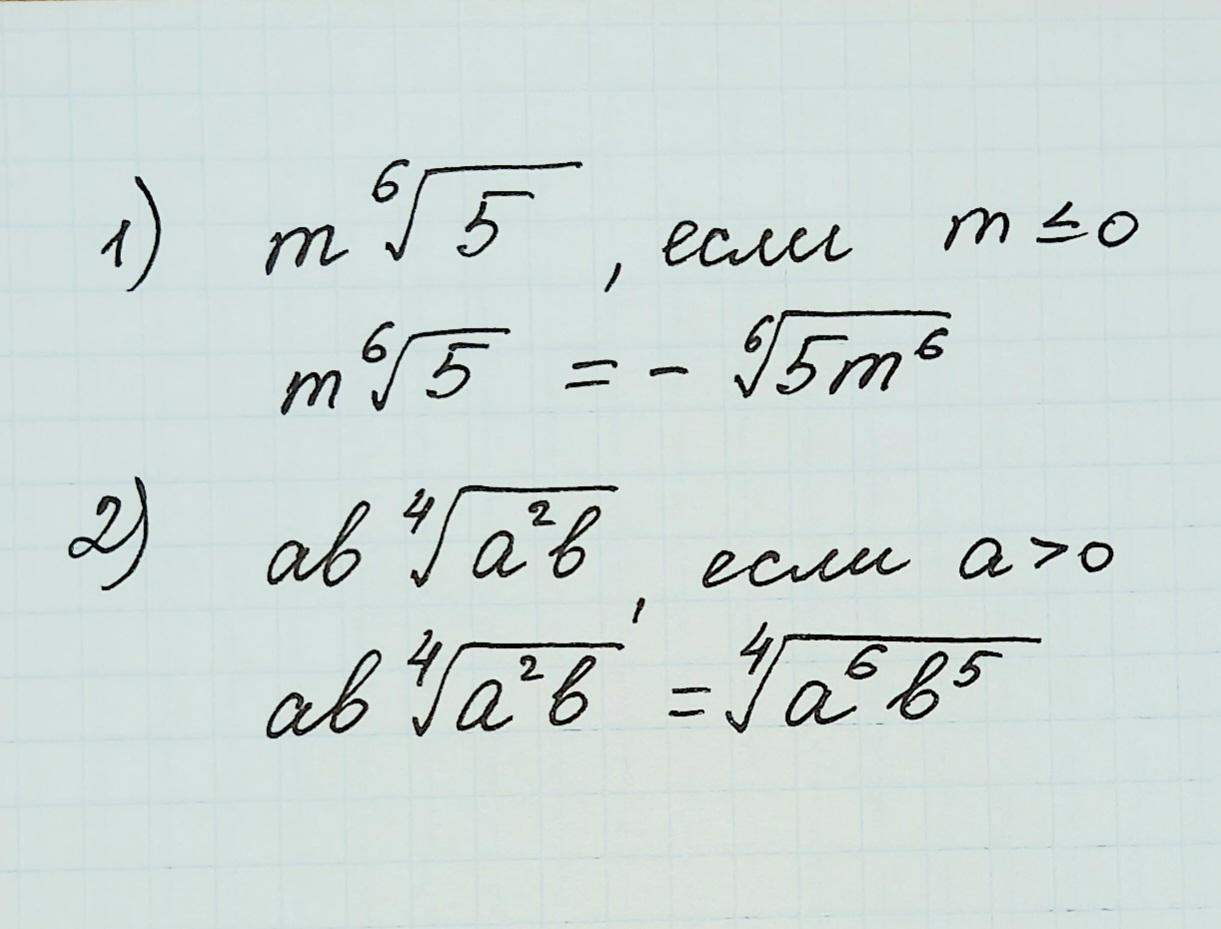 1) m ⁶√5, если m ≤ 0
m ⁶√5 = - ⁶√(5m⁶)
2) ab ⁴√(a²b), если a > 0
ab ⁴√(a²b) = ⁴√(a⁶b⁵)